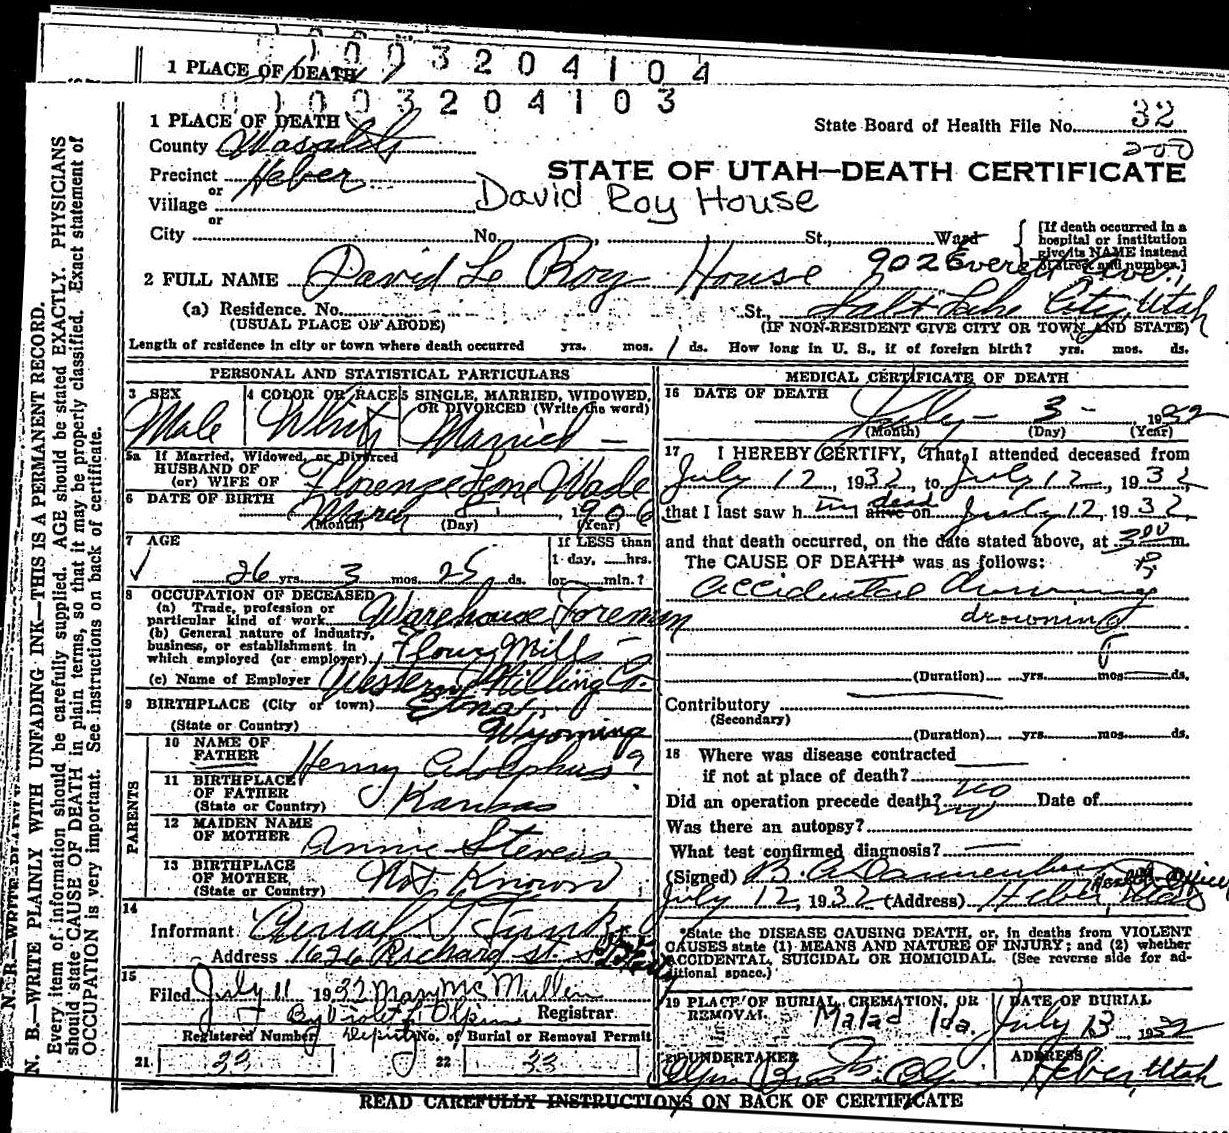 1 PLACE OF DEATH
0 0 0 3 2 0 4 1 0 4
0 1 0 0 3 2 0 4 1 0 3
1 PLACE OF DEATH
County Wasatch
State Board of Health File No. 32
200
Precinct Heber
or
STATE OF UTAH—DEATH CERTIFICATE
Village
David Roy House
or
City No. St., Ward
[If death occurred in a hospital or institution give its NAME instead of street and number.]
2 FULL NAME David Le Roy House 902 Everett Ave.,
(a) Residence. No. St., Salt Lake City, Utah
(USUAL PLACE OF ABODE) (IF NON-RESIDENT GIVE CITY OR TOWN AND STATE)
Length of residence in city or town where death occurred yrs. mos. 1 ds. How long in U. S., if of foreign birth? yrs. mos. ds.
PERSONAL AND STATISTICAL PARTICULARS
3 SEX
Male
4 COLOR OR RACE
White
5 SINGLE, MARRIED, WIDOWED, OR DIVORCED (Write the word)
Married —
5a If Married, Widowed, or Divorced
HUSBAND OF
(or) WIFE OF Florenze Leone Wade
6 DATE OF BIRTH March 8, 1906
(Month) (Day) (Year)
7 AGE
26 yrs. 3 mos. 25 ds.
If LESS than
1 day, hrs.
or min.?
8 OCCUPATION OF DECEASED
(a) Trade, profession or
particular kind of work Warehouse Foreman
(b) General nature of industry,
business, or establishment in
which employed (or employer) Flour Mills
(c) Name of Employer Western Milling Co.
9 BIRTHPLACE (City or town) Etna,
(State or Country) Wyoming
PARENTS
10 NAME OF
FATHER Henry Adolphus
11 BIRTHPLACE
OF FATHER
(State or Country) Kansas
12 MAIDEN NAME
OF MOTHER Annie Stevens
13 BIRTHPLACE
OF MOTHER
(State or Country) Not Known
14
Informant
Address 1626 Richard St.
15
Filed July 11 1932 Mary McMullin
By Violet L Olpin Registrar.
Deputy
Registered Number No. of Burial or Removal Permit
21 33 22 33
MEDICAL CERTIFICATE OF DEATH
16 DATE OF DEATH
July — 3 — 1932
(Month) (Day) (Year)
17 I HEREBY CERTIFY, That I attended deceased from
July 12, 1932, to July 12, 1932
that I last saw him alive on dead July 12, 1932,
and that death occurred, on the date stated above, at 3 00 m.
The CAUSE OF DEATH* was as follows:
Accidental drowning
drowning
(Duration) yrs. mos. ds.
Contributory
(Secondary)
(Duration) yrs. mos. ds.
18 Where was disease contracted
if not at place of death?
Did an operation precede death? no Date of
Was there an autopsy?
What test confirmed diagnosis?
(Signed)
Health Officer
July 12, 1932 (Address) Heber, Utah
*State the DISEASE CAUSING DEATH, or, in deaths from VIOLENT
CAUSES state (1) MEANS AND NATURE OF INJURY; and (2) whether
ACCIDENTAL, SUICIDAL OR HOMICIDAL. (See reverse side for ad-
ditional space.)
19 PLACE OF BURIAL, CREMATION, OR
REMOVAL Malad Ida.
DATE OF BURIAL
July 13, 1932
20 UNDERTAKER
Olpin Bros
ADDRESS
Heber, Utah
READ CAREFULLY INSTRUCTIONS ON BACK OF CERTIFICATE
N. B.—WRITE PLAINLY WITH UNFADING INK—THIS IS A PERMANENT RECORD.
Every item of information should be carefully supplied. AGE should be stated EXACTLY. PHYSICIANS
should state CAUSE OF DEATH in plain terms, so that it may be properly classified. Exact statement of
OCCUPATION is very important. See instructions on back of certificate.